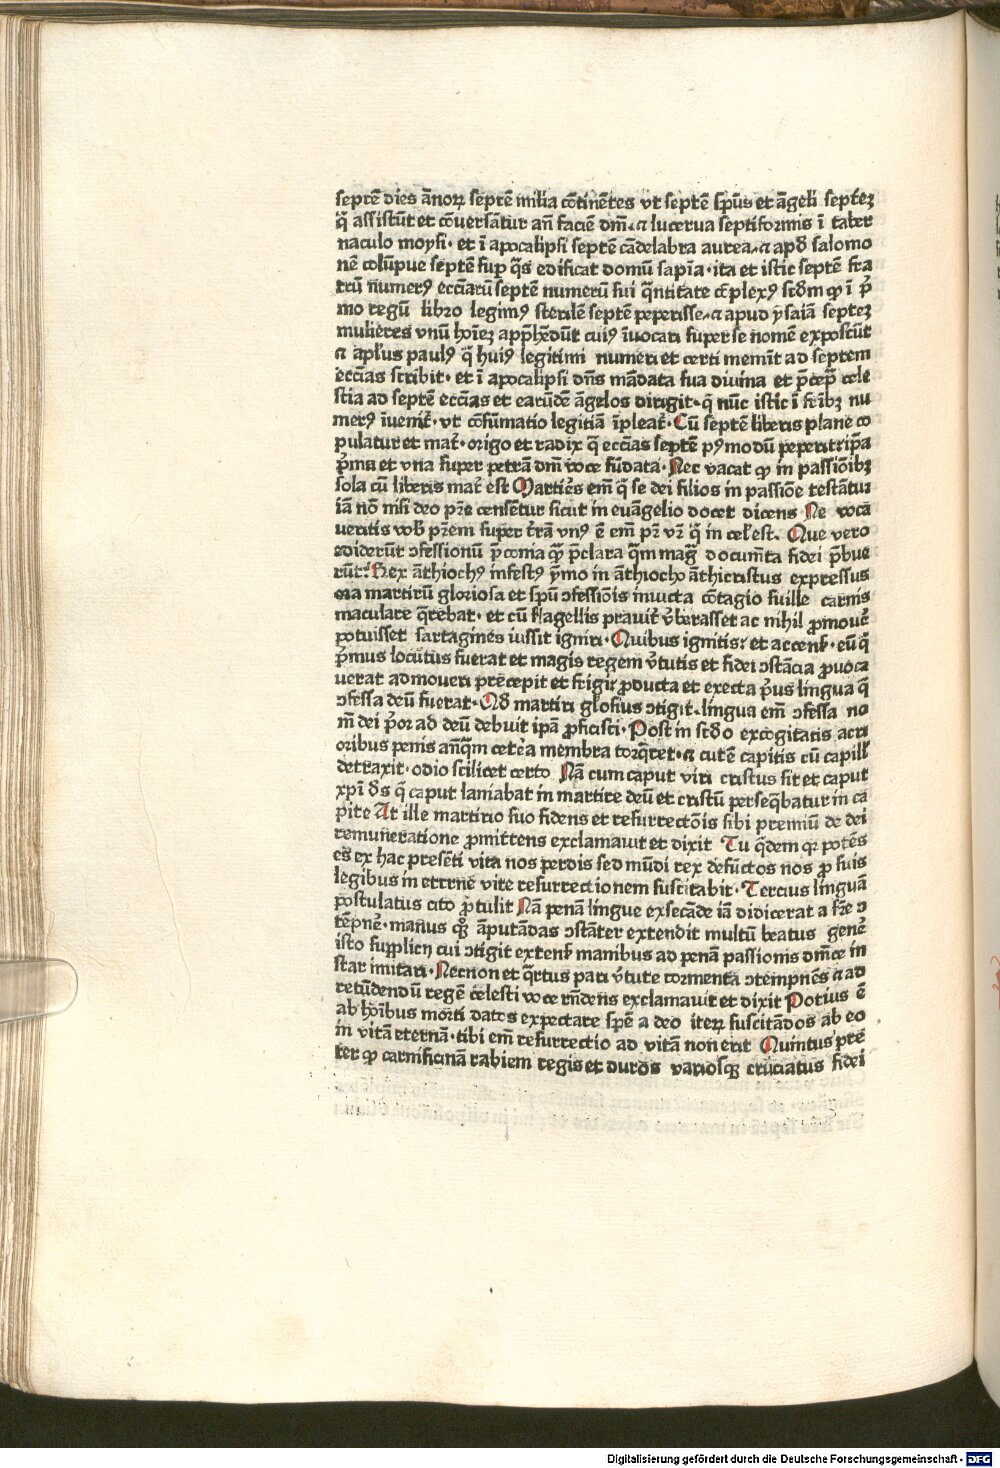 septē dies ānoꝝ septē milia cōtinētes vt septē spūs et āgeli septēꝫ
q̄ assistūt et cōuersātur an̄ faciē dm̄.⁊ lucerna septiformis ī taber
naculo moysi. et ī apocalipsi septē cādelabra aurea.⁊ apd̄ salomo
nē colūpne septē sup q̄s edificat domū sapīa.ita et istic septē fra
trū numerꝰ eccīarū septē numerū sui q̄ntitate cōplexꝰ scd̄m ꝙ ī p̄
mo regū libro legimꝰ sterilē septē peperisse.⁊ apud ysaiā septeꝫ
mulieres vnū hoīeꝫ app̄hēdūt cuiꝰ īuocari super se nomē exposcūt
⁊ apl̄us paulꝰ q̄ huiꝰ legitimi numeri et certi memīt ad septem
eccīas scribit. et ī apocalipsi dn̄s mādata sua diuina et p̄cep̄ cele
stia ad septē eccīas et earūdē āgelos dirigit.q̄ nūc istic ī frībꝫ nu
merꝰ īuenit̄.vt cōsūmatio legitiā īpleat̄.Cū septē liberis plane co
pulatur et mat̄.origo et radix q̄ eccīas septē pꝰmodū peperit ip̄a
p̄ma et vna super petrā dm̄ voce fūdata.Nec vacat ꝙ in passiōibꝫ
sola cū liberis mat̄ est Martires em̄ q̄ se dei filios in passiōe testātur
iā nō nisi deo pr̄e censētur sicut in euāgelio docet dicens Ne voca
ueritis vob̄ pr̄em super t̄rā vnꝰ ē em̄ pr̄ vr̄ q̄ in cel̄ est. Que vero
ediderūt ɔfessionū p̄conia q̄ꝫ p̄clara q̄m maḡ documēta fidei p̄bue
rūt.Rex āthiochꝰ infestꝰ ymo in āthiocho āthicristus expressus
ora martirū gloriosa et spū ɔfessiōis inuicta cōtagio suille carnis
maculare q̄rebat.et cū flagellis grauit̄ v̄berasset ac nihil ꝓmouē
potuisset sartagines iussit igniri.Quibus ignitis.et accens̄.eū q̄
p̄mus locutus fuerat et magis regem v̄tutis et fidei ɔstācia ꝓuoca
uerat admoueri precepit et frigi ꝓducta et execta p̄us lingua q̄
ɔfessa deū fuerat.Qd̄ martiri glosius ɔtigit.lingua em̄ ɔfessa no
m̄ dei p̄or ad deū debuit ipā ꝓficisci.Post in scd̄o excogitatis acri
oribus penis anq̄m cetēa membra torq̄ret.⁊ cutē capitis cū capill̄
detraxit.odio scilicet certo Nā cum caput viri cristus sit et caput
xpī d̄s q̄ caput laniabat in martire deū et cristū perseq̄batur in ca
pite At ille martirio suo fidens et resurrectōis sibi premiū de dei
remuneratione ꝓmittens exclamauit et dixit Tu q̄dem qr potēs
es ex hac presēti vita nos perdis sed mūdi rex defūctos nos ꝓ suis
legibus in eternē vite resurrectionem suscitabit.Tercius linguā
postulatus cito ꝓtulit Nā penā lingue exsecāde iā didicerat a fr̄e ɔ
tēpnē.manus qꝫ āputādas ɔstāter extendit multū beatus genē
isto supplicij cui ɔtigit extens̄ manibus ad penā passionis dn̄ice in
star imitari.Necnon et q̄rtus pari v̄tute tormenta ɔtempnēs ⁊ ad
retūdendū regē celesti voce rn̄dens exclamauit et dixit Potius ē
ab hoībus morti datos expectare spē a deo iteꝝ suscitādos ab eo
in vitā eternā.tibi em̄ resurrectio ad vitā non erit Quintus pre
ter ꝙ carnificinā rabiem regis et duros variosqꝫ cruciatus fidei
Digitalisierung gefördert durch die Deutsche Forschungsgemeinschaft - DFG